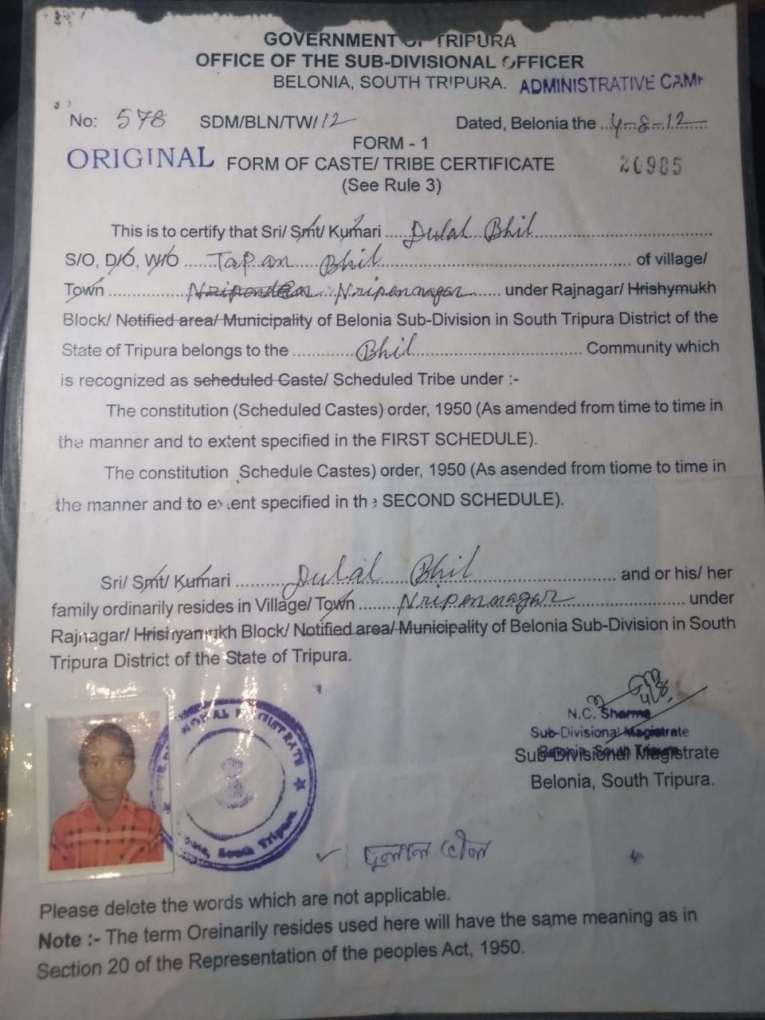 GOVERNMENT OF TRIPURA
OFFICE OF THE SUB-DIVISIONAL OFFICER
BELONIA, SOUTH TRIPURA. ADMINISTRATIVE CAMP
No: 578 SDM/BLN/TW/12 Dated, Belonia the ...4-8-12......
FORM - 1
ORIGINAL FORM OF CASTE/ TRIBE CERTIFICATE 26985
(See Rule 3)
This is to certify that Sri/ Smt/ Kumari ..... Dulal Bhil ..........
S/O, D/O, W/O ..... Tapan Bhil ..... of village/
Town ..... Nripennagar ..... under Rajnagar/ Hrishymukh
Block/ Notified area/ Municipality of Belonia Sub-Division in South Tripura District of the
State of Tripura belongs to the ..... Bhil ..... Community which
is recognized as scheduled Caste/ Scheduled Tribe under :-
The constitution (Scheduled Castes) order, 1950 (As amended from time to time in
the manner and to extent specified in the FIRST SCHEDULE).
The constitution Schedule Castes) order, 1950 (As asended from tiome to time in
the manner and to extent specified in the SECOND SCHEDULE).
Sri/ Smt/ Kumari ..... Dulal Bhil ..... and or his/ her
family ordinarily resides in Village/ Town ..... Nripennagar ..... under
Rajnagar/ Hrishyamukh Block/ Notified area/ Municipality of Belonia Sub-Division in South
Tripura District of the State of Tripura.
N.C. Sharma
Sub-Divisional Magistrate
Belonia, South Tripura
Sub-Divisional Magistrate
Belonia, South Tripura.
South Tripura
দুলাল ভীল
Please delete the words which are not applicable.
Note :- The term Oreinarily resides used here will have the same meaning as in
Section 20 of the Representation of the peoples Act, 1950.